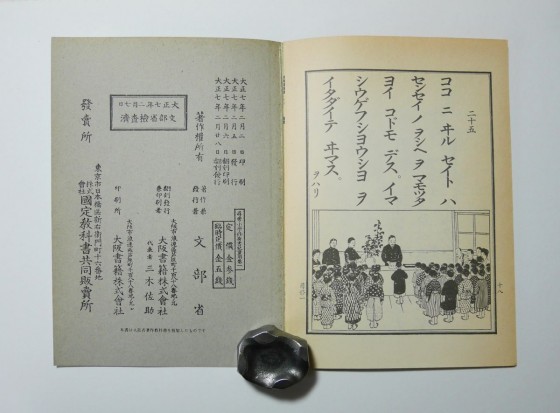 二十五
ココ ニ ヰル セイト ハ
センセイ ノ ヲシヘ ヲ マモツタ
ヨイ コドモ デス。イマ
シウゲフシヨウシヨ ヲ
イタダイテ ヰマス。
ヲハリ
十八
大正七年二月二日印刷
大正七年二月五日發行
大正七年二月六日翻刻印刷
大正七年二月廿八日翻刻發行
著作權所有
大正七年二月七日
文部省檢査濟
定價金參錢
臨時定價金五錢
著作兼發行者
文部省
翻刻發行兼印刷者
大阪書籍株式會社
代表者 三木佐助
印刷所
大阪書籍株式會社
發賣所
東京市日本橋區新右衛門町十六番地
株式會社 國定教科書共同販賣所